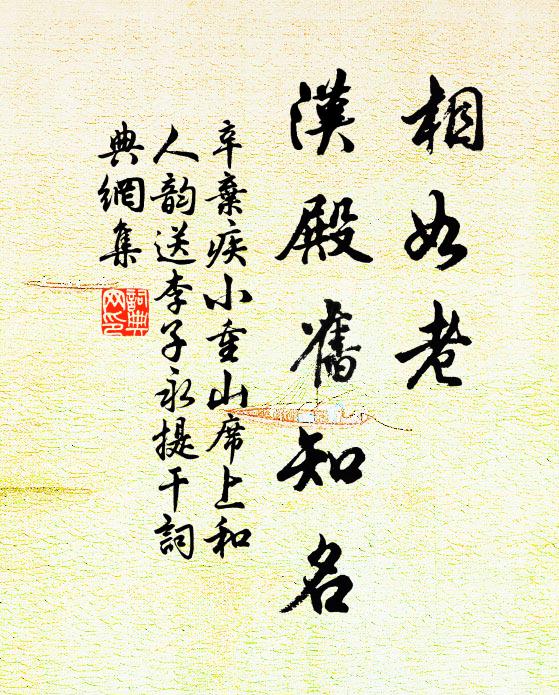 相如老
漢殿舊知名
辛棄疾小重山席上和
人韵送李子永提干詞
典網集
詞典網印